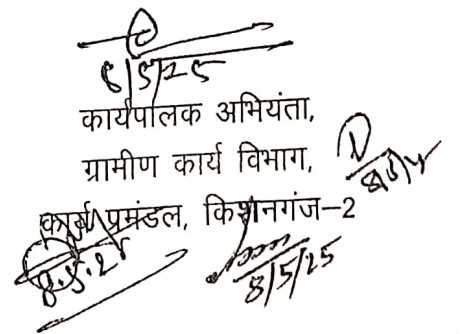 8/5/25
कार्यपालक अभियंता,
ग्रामीण कार्य विभाग,
कार्य प्रमंडल, किशनगंज-2
8/5/25